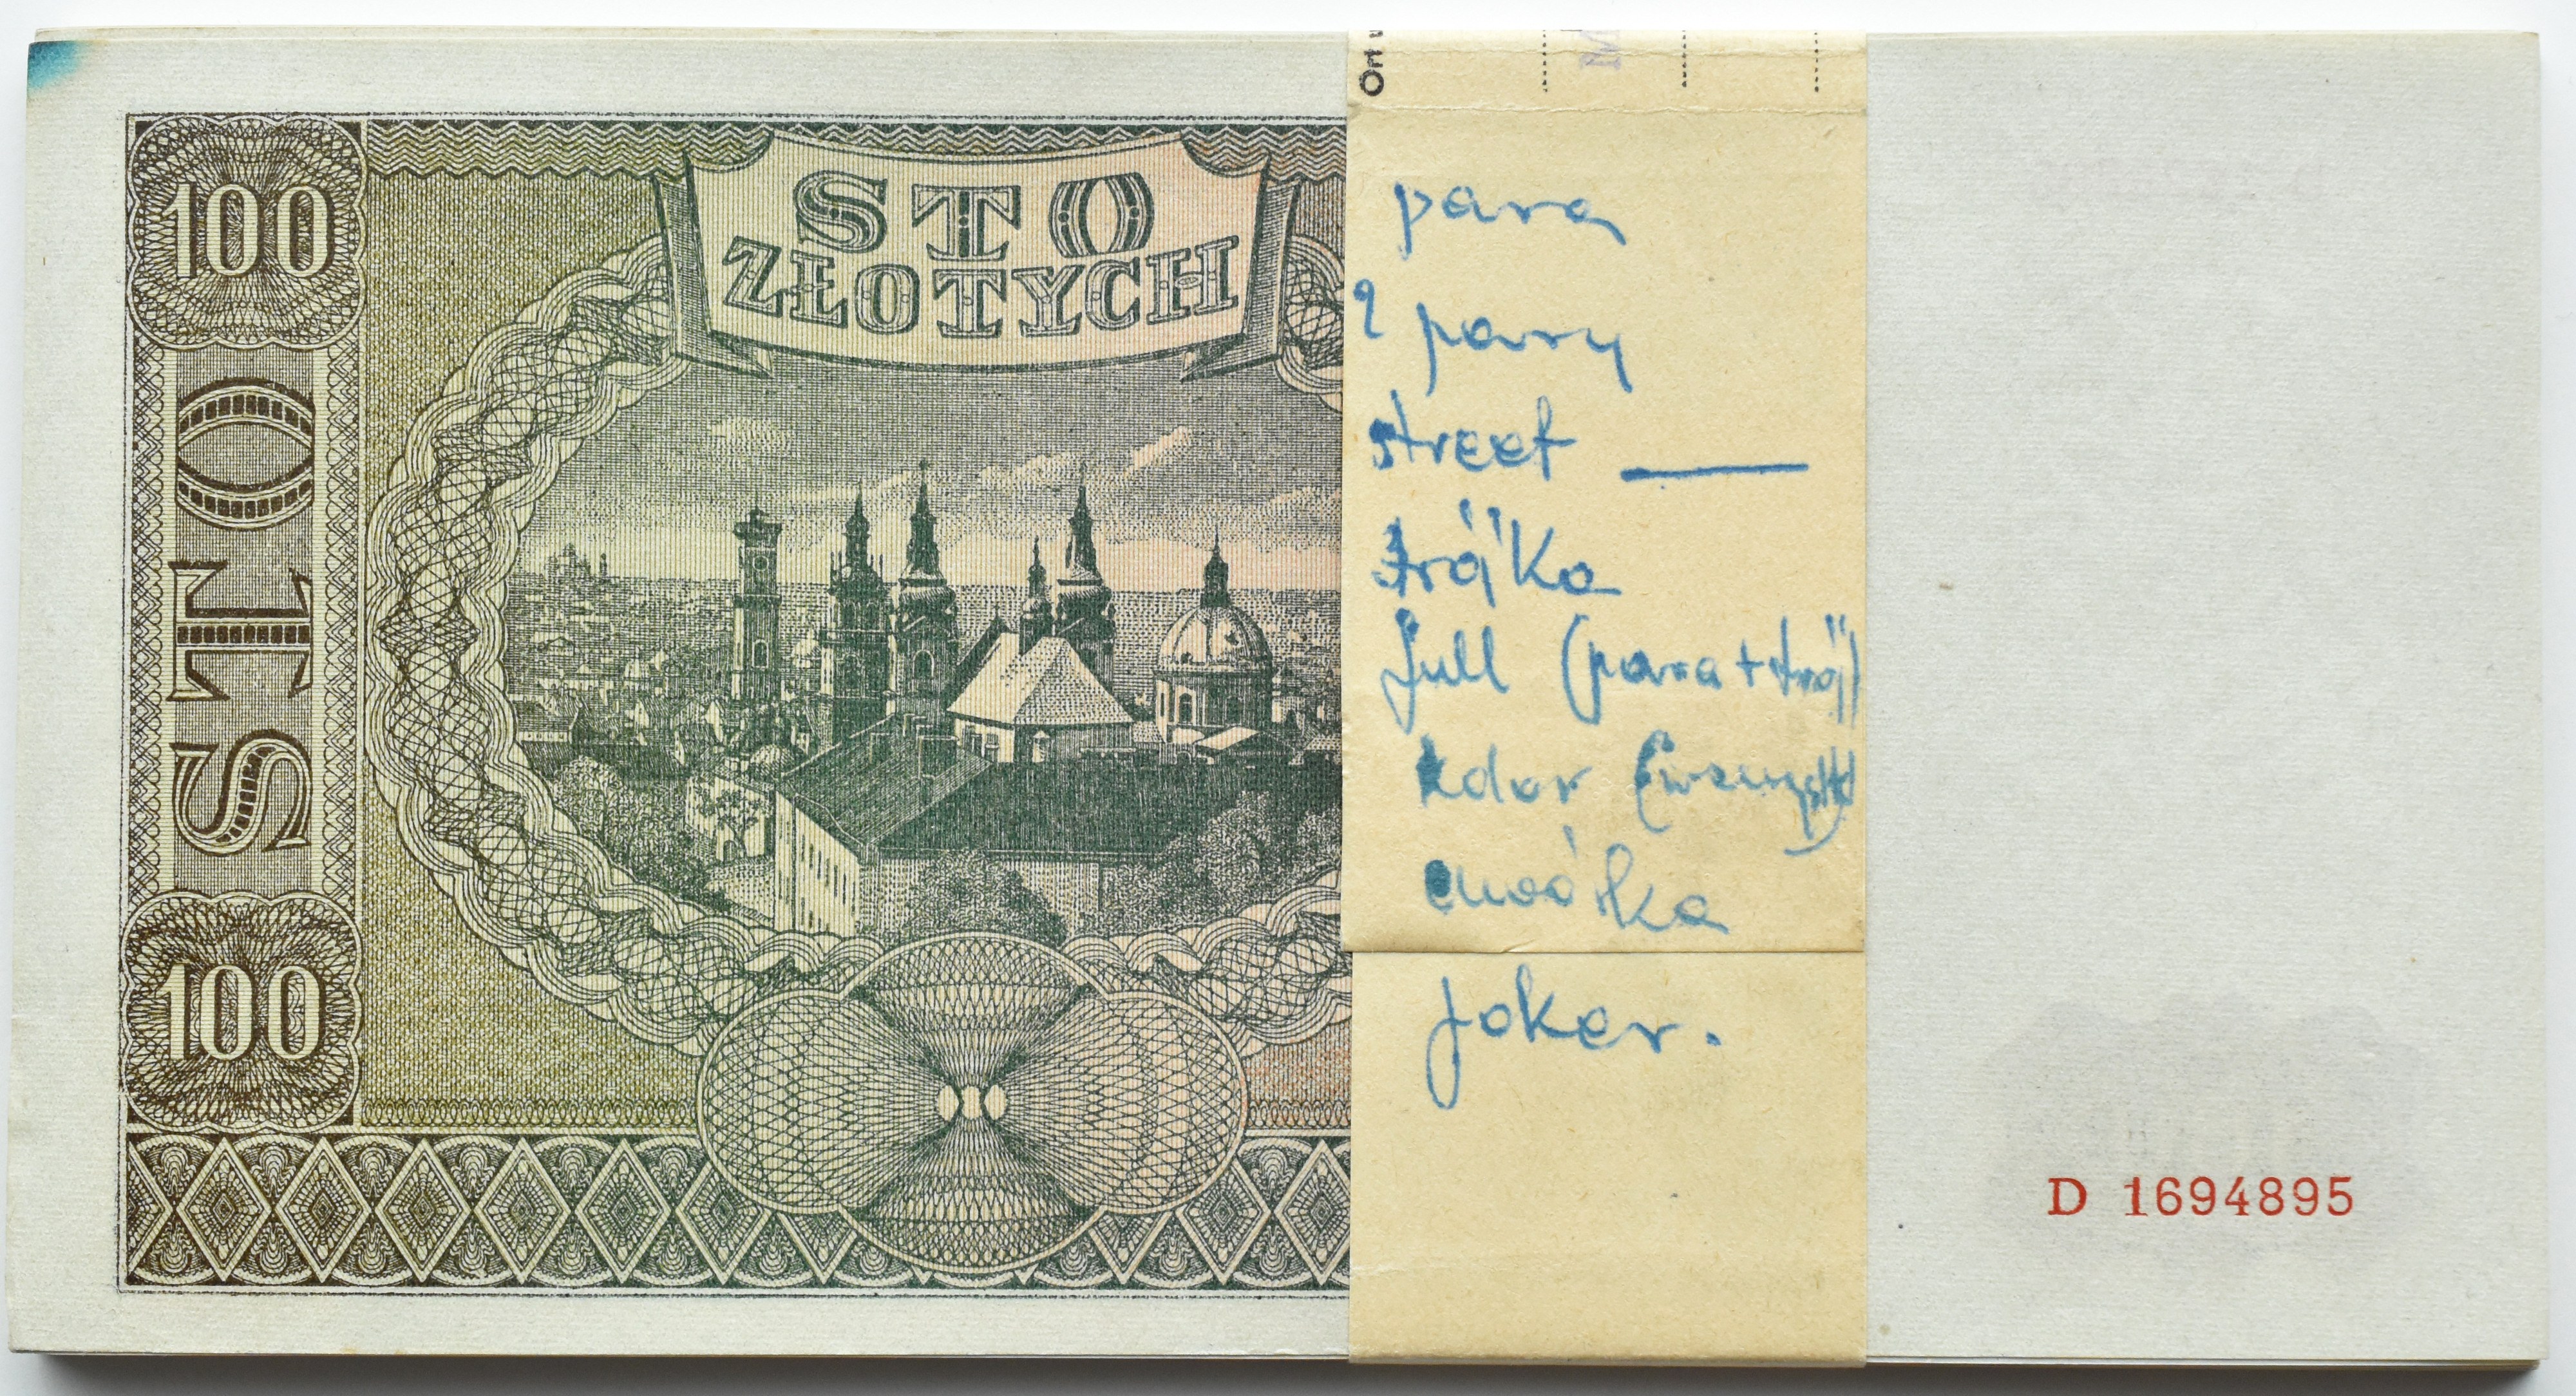 100
STO
ZŁOTYCH
STO
100
Ort u
M
para
2 pary
street —
trójka
full (para + trój)
kolor
joker.
D 1694895